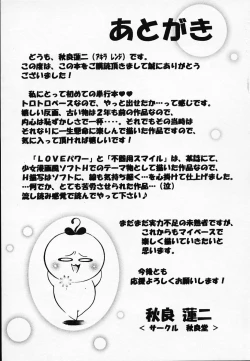 あとがき
どうも、秋良蓮二(アキラ レンジ)です。
この度は、この本をご購読頂きまして誠にありがとう
ございました!
私にとって初めての単行本♥♥
トロトロペースなので、やっと出せたか…って感じです。
嬉しい反面、古い物は2年も前の作品なので、
内心は恥ずかしさで一杯…、それでもその当時は
それなりに一生懸命に楽しんで描いた作品ですので、
気に入って頂ければ嬉しいです!
「LOVEパワー」と「不器用スマイル」は、某誌にて、
少女漫画風ソフトHでのテーマ物として描いた作品なので、
H描写はソフトに、線も気持ち細く…を心掛けて仕上げました。
…何だか、とても苦労させられた作品です…(泣)
流し読み感覚で読んでやって下さい♪
まだまだ実力不足の未熟者ですが、
これからもマイペースで
楽しく描いていきたいと
思います。
今後も
応援よろしくお願いします!
秋良 蓮二
< サークル 秋良堂 >